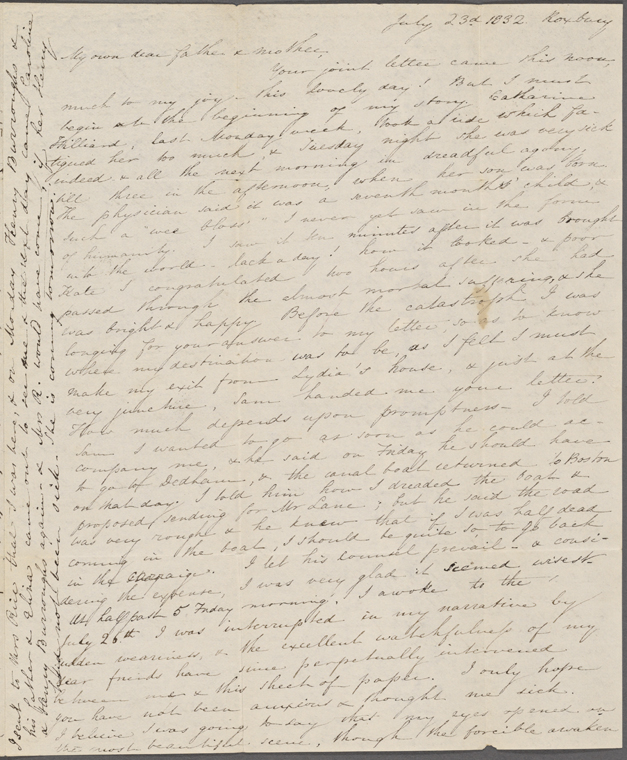 July 23d 1832. Roxbury
My own dear father & mother,
Your joint letter came this noon,
much to my joy - this lovely day! But I must
begin at the beginning of my story. Catharine
Hilliard, last Monday week, took a ride which fa-
tigued her too much, & Tuesday night she was very sick
indeed & all the next morning in dreadful agony,
till three in the afternoon, when her son was born.
The physician said it was a seventh months' child, &
such a "wee bloss" I never yet saw in the form
of humanity. I saw it ten minutes after it was brought
into the world - lack a day! how it looked - & poor
Kate I congratulated two hours after she had
passed through the almost mortal suffering, & she
was bright & happy. Before the catastrophe, I was
longing for your answer to my letter so as to know
where my destination was to be, as I felt I must
make my exit from Lydia's house, & just at the
very juncture, Sam handed me your letter.
How much depends upon promptness - I told
Sam I wanted to go as soon as he could ac-
company me, & he said on Friday he should have
to go to Dedham, & the canal boat returned to Boston
on that day. I told him how I dreaded the boat &
proposed sending for Mr Lane, but he said the road
was very rough & he knew that if I was half dead
coming in the boat, I should be quite so to go back
in the . I let his counsel prevail - & consi-
dering the expense, I was very glad it seemed wisest.
At half past 5 Friday morning, I awoke to the
July 26th I was interrupted in my narrative by
sudden weariness, & the excellent watchfulness of my
dear friends have since perpetually intervened
between me & this sheet of paper. I only hope
you have not been anxious & thought me sick.
I believe I was going to say that my eyes opened on
the most beautiful scene, though the forcible awaken
I sent to Mrs Rice that I was here, & on Monday Henry Burroughs &
his father & Eliza came out to see me & the next day came Caroline
& Henry Burroughs again - & Mrs R. would have come if her Henry
had not been sick. She is coming tomorrow.